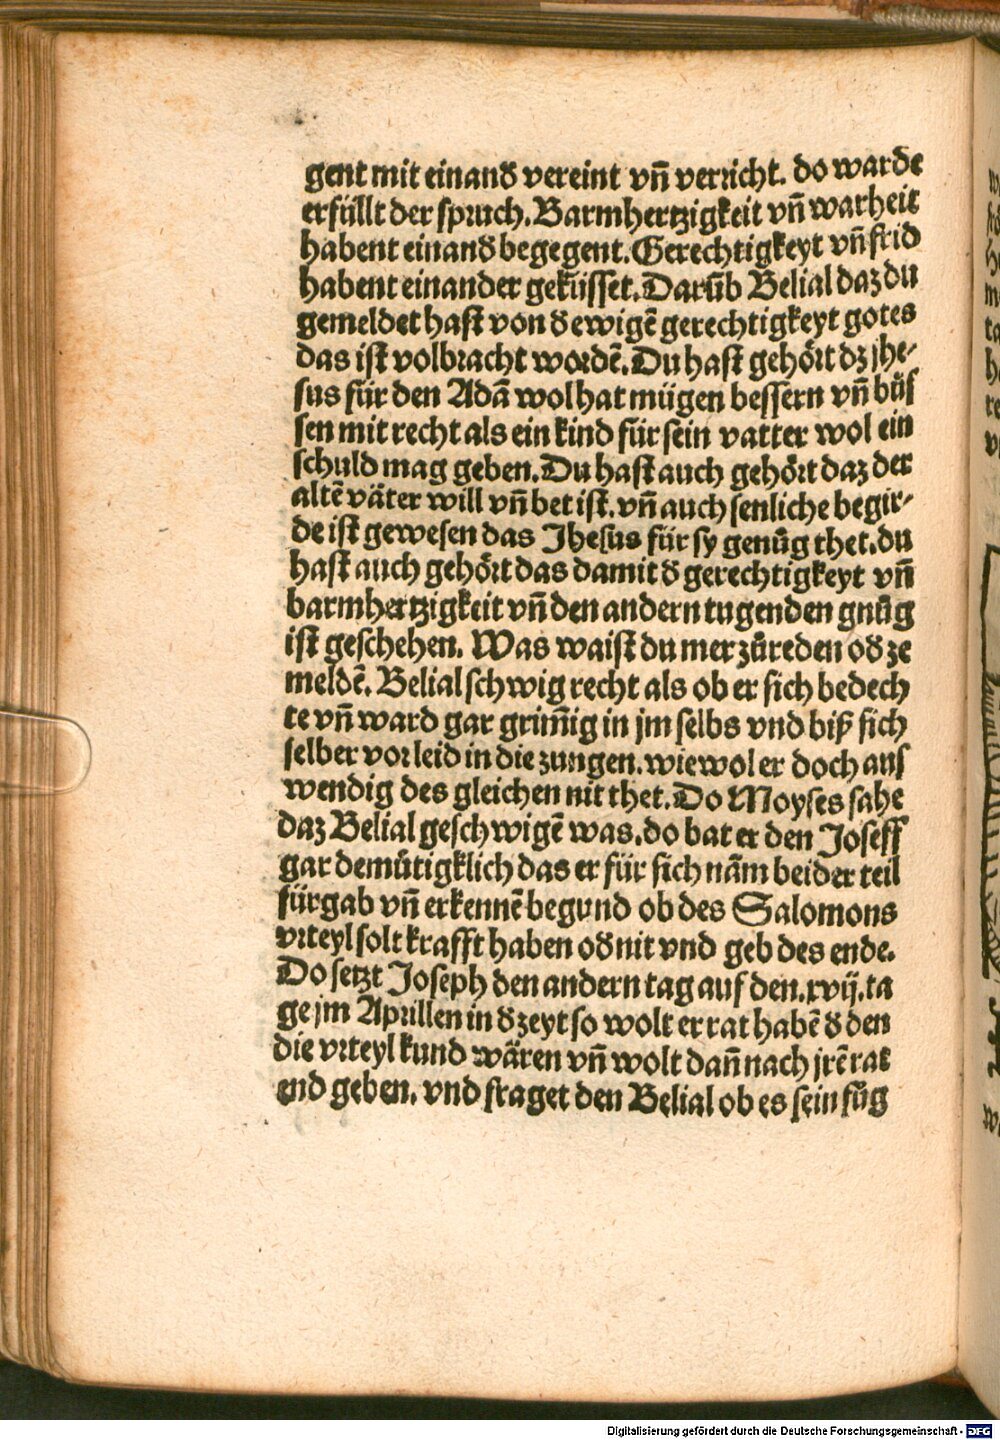 gent mit einand vereint vñ verricht. do warde
erfüllt der spruch. Barmhertzigkeit vñ warheit
habent einand begegent. Gerechtigkeyt vñ frid
habent einander geküsset. Darũb Belial daz du
gemeldet hast von d ewigẽ gerechtigkeyt gotes
das ist volbracht wordẽ. Du hast gehört dz jhe⸗
sus für den Adã wol hat mügen bessern vñ bůs
sen mit recht als ein kind für sein vatter wol ein
schuld mag geben. Du hast auch gehört daz der
altẽ väter will vñ bet ist. vñ auch senliche begir⸗
de ist gewesen das Jhesus für sy genůg thet. du
hast auch gehört das damit d gerechtigkeyt vñ
barmhertzigkeit vñ den andern tugenden gnůg
ist geschehen. Was waist du mer zůreden od ze
meldẽ. Belial schwig recht als ob er sich bedech
te vñ ward gar grim̃ig in jm selbs vnd biß sich
selber vor leid in die zungen. wiewol er doch aus
wendig des gleichen nit thet. Do Moyses sahe
daz Belial geschwigẽ was. do bat er den Joseff
gar demůtigklich das er für sich näm beider teil
fürgab vñ erkennẽ begund ob des Salomons
vrteyl solt krafft haben od nit vnd geb des ende.
Do setzt Joseph den andern tag auf den. xvij. ta
ge jm Aprillen in d zeyt so wolt er rat habẽ d den
die vrteyl kund wären vñ wolt dañ nach jrẽ rat
end geben. vnd fraget den Belial ob es sein fůg
Digitalisierung gefördert durch die Deutsche Forschungsgemeinschaft - DFG